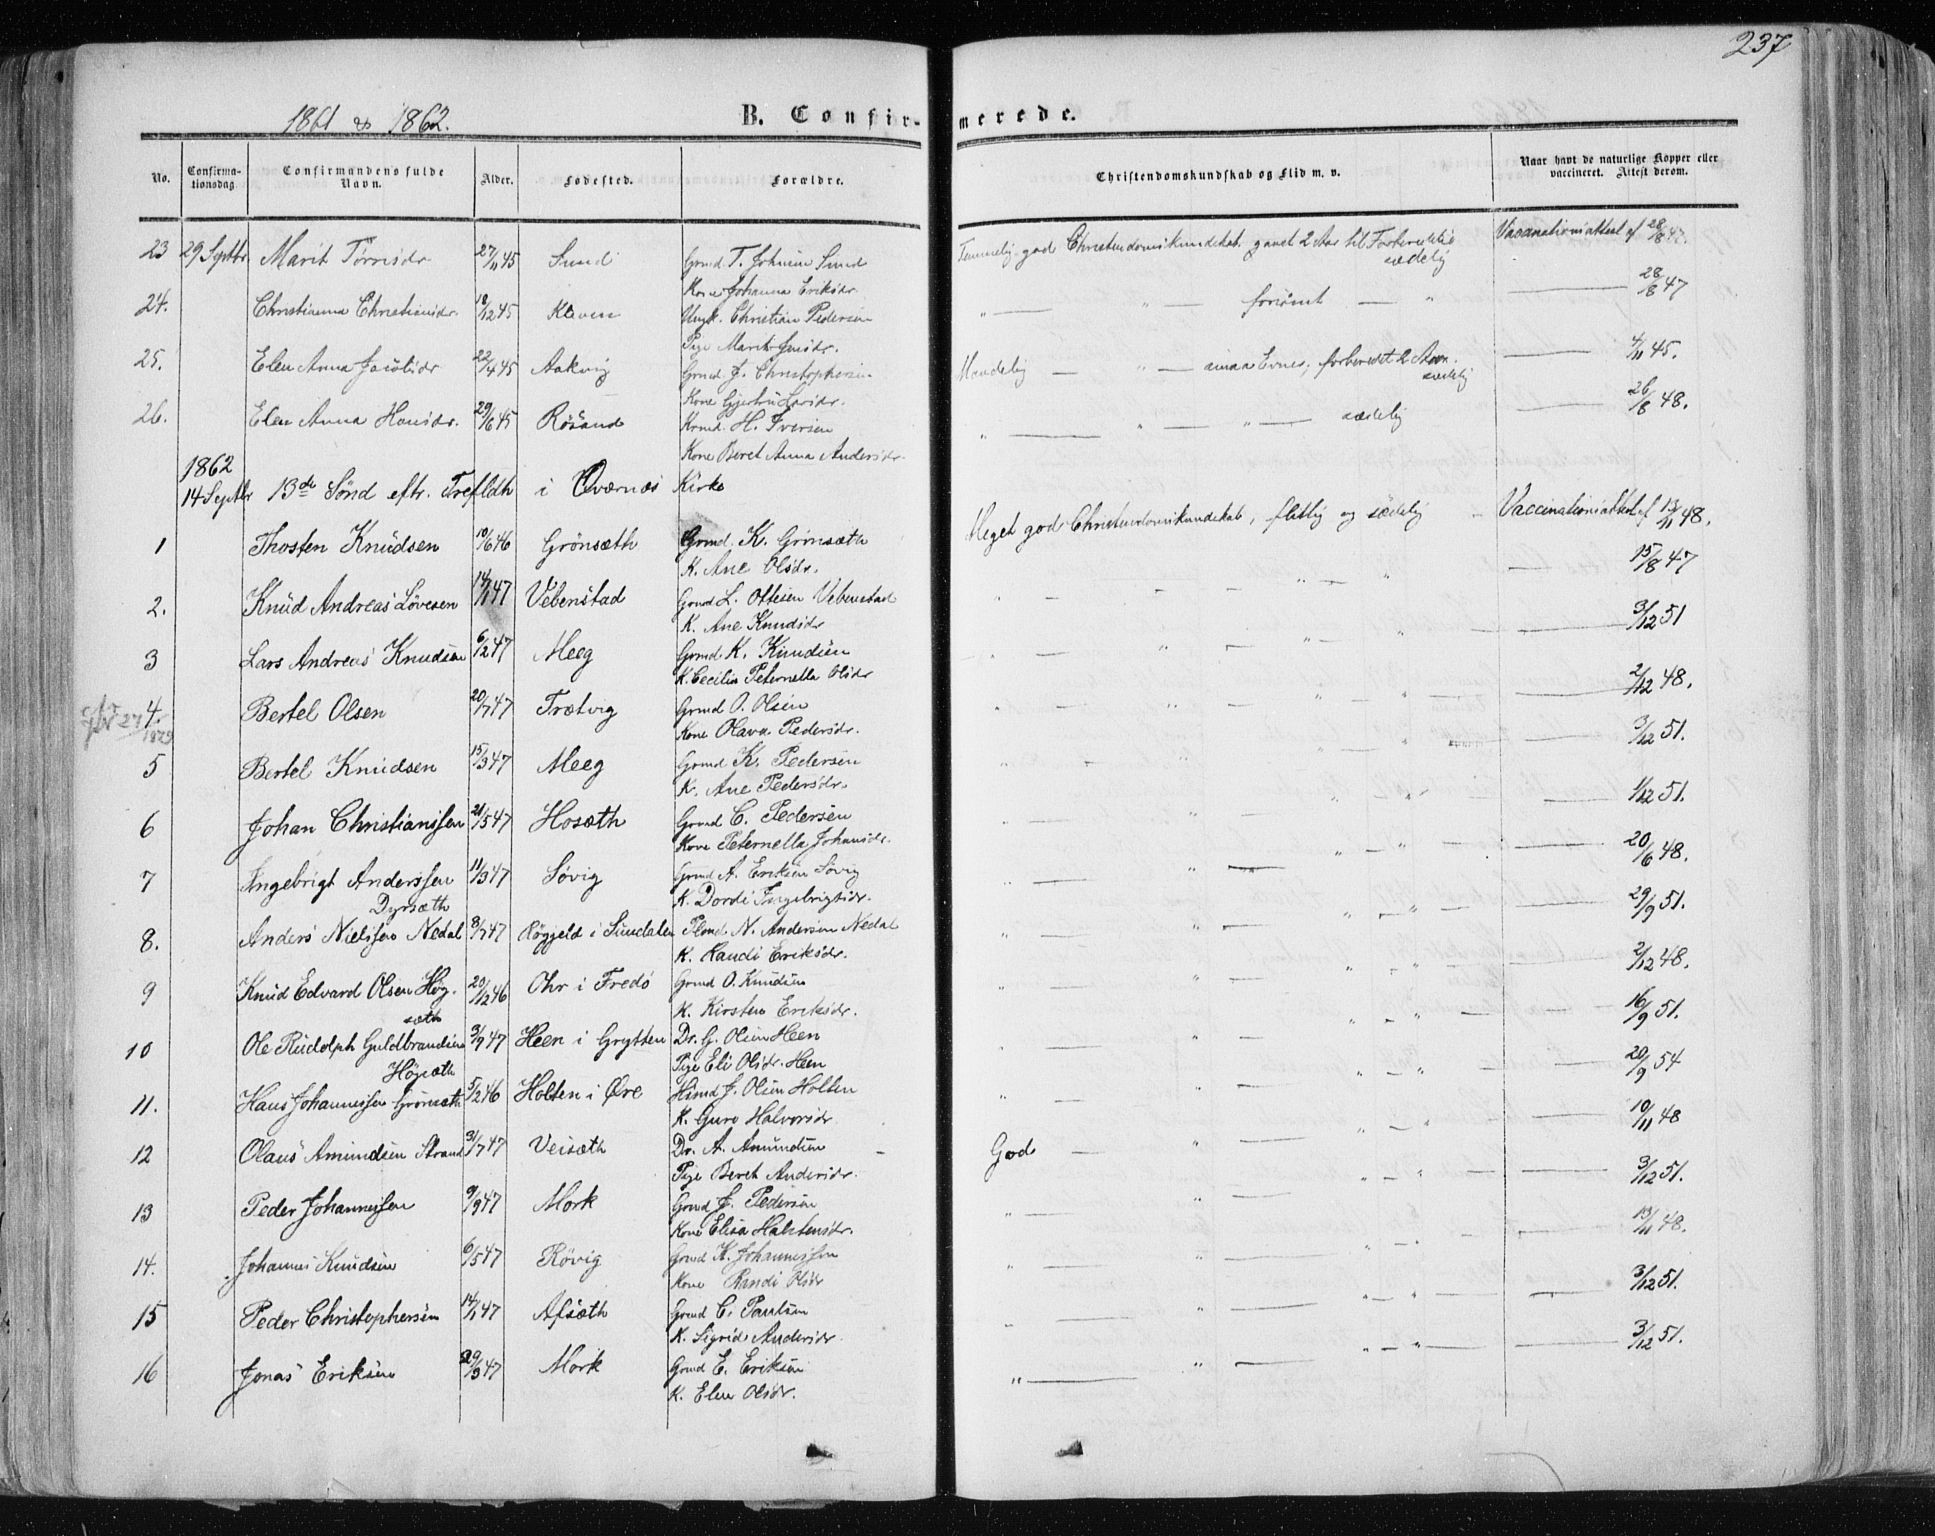 237
1861 & 1862.
B. Confirmerede.
No. Confirmationsdag Confirmandens fulde Navn. Alder. Fødested. Forældre. Christendomskundskab og Flid m. v. Naar havt de naturlige Kopper eller vaccineret. Attest derom.
23 29 Septbr. Marit Törrisdr 27/11 45 Sund Grmd T. Johnsen Sund Temmelig god Christendomskundskab, Vaccinationsattest af 28/8 47.
sædelig
Kone Johanna Eriksdr
24. Christianna Christiansdr. 18/12 45 Kleven Ungk. Christian Pedersen " — " — forsömt — " — 28/8 47
Pige Marit Jensdr.
25. Elen Anna Jacobsdr 22/4 45 Aakvig Grmd J. Christophersen Maadelig — " — smaa Evner, forberedt 2 Aar. — 4/11 45.
sædelig
Kone Gjertru Larsdr.
26. Elen Anna Hansdr. 29/6 45 Rösand Krmd. H. Iversen " — " — " — sædelig — 26/8 48.
Kone Beret Anna Andersdr.
1862
14 Septbr 13de Sönd eftr. Trefldh i Qvernæs Kirke
1 Thosten Knudsen 10/6 46 Grönsæth Grmd. K. Grönsæth Meget god Christendomskundskab, flittig og sædelig — Vaccinationsattest af 13/11 48.
K. Ane Olsdr.
2. Knud Andreas Lövesen 14/1 47 Vebenstad Grmd L. Ottesen Vebenstad " — " " — 15/8 47
K. Ane Knudsdr
3 Lars Andreas Knudsen 6/2 47 Meeg Grmd K. Knudsen " — " — " — " — 3/12 51
K. Cecilia Peternella Olsdr
4. Bertel Olsen 20/7 47 Trætvig Grmd O. Olsen " — " — " — " — 2/12 48.
Kone Olava Pedersdr.
5 Bertel Knudsen 15/3 47 Meeg Grmd K. Pedersen " — " — " — 3/12 51.
K. Ane Pedersdr.
6 Johan Christianssen 21/5 47 Hosæth Grmd C. Pedersen " — " — " — 1/12 51.
Kone Peternella Johansdr.
7 Ingebrigt Anderssen 11/3 47 Sövig Grmd A. Eriksen Sövig " — " — " — " — 20/6 48.
Dyrsæth K. Dordi Ingebrigtsdr.
8. Anders Nielssen Nedal 8/7 47 i Sundalen N. Andersen Nedal " — " — " — 29/9 51.
K. Randi Eriksdr.
9 Knud Edvard Olsen Hög- 20/12 46 Ohr i Fredö Grmd O. Knudsen " — " — " — 2/12 48.
sæth K. Kirsten Eriksdr.
10 Ole Rudolph Guldbrandsen 3/9 47 Heen i Grytten Dr. G. Olsen Heen " — " — " — 16/9 51.
Högsæth Pige Eli Olsdr. Heen
11. Hans Johannessen Grönsæth 5/2 46 Holten i Øre Hsmd J. Olsen Holten " — " — " — 20/9 54
K. Guro Halvorsdr
12 Olaus Amundsen Strand 31/7 47 Veisæth Dr. A. Amundsen God — " — " — 10/11 48
Pige Beret Andersdr.
13 Peder Johannessen 9/9 47 Mork Grmd J. Pedersen " — " — " — 3/12 51.
Kone Elisa Halstensdr.
14. Johannes Knudsen 6/5 47 Rövig Grmd K. Johannessen " — " — " — 13/11 48.
Kone Randi Olsdr
15 Peder Christophersen 14/1 47 Afsæth Grmd C. Paulsen " — " — " — 3/12 51.
K. Sigrid Andersdr.
16 Jonas Eriksen 29/3 47 Mork Grmd E. Eriksen " — " — " — 3/12 51.
K. Elen Olsdr.